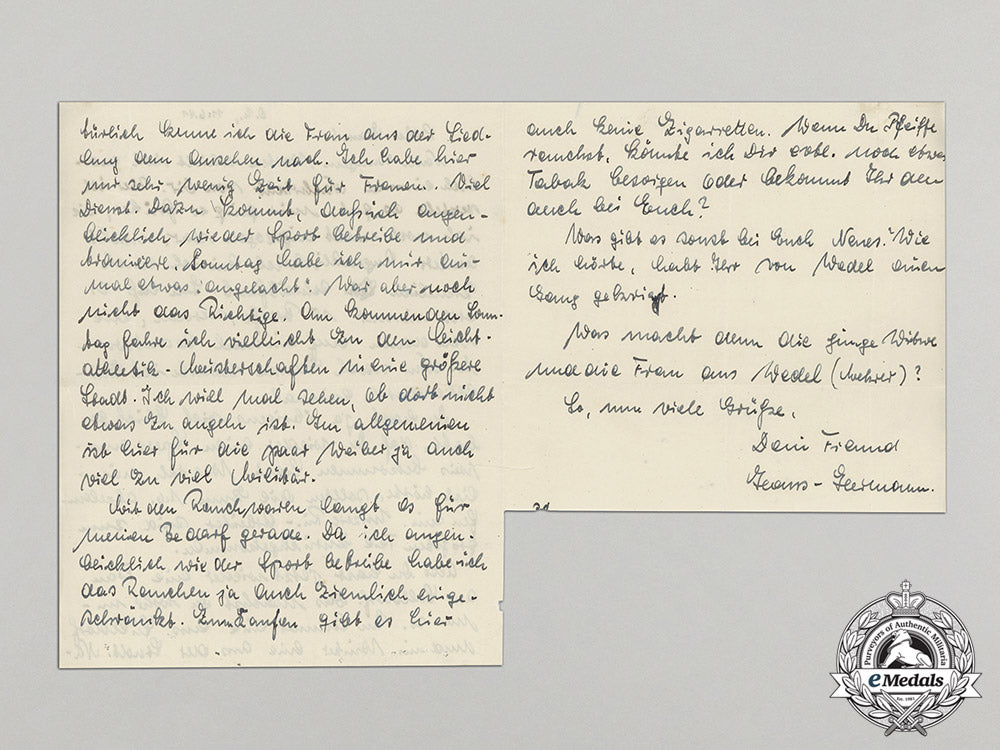 türlich kenne ich die Frau aus der Sied-
lung dem Ansehen nach. Ich habe hier
nur sehr wenig Zeit für Frauen. Viel
Dienst. Dazu kommt, daß ich augen-
blicklich wieder Sport betreibe und
trainiere. Sonntag habe ich mir ein-
mal etwas "angelacht". War aber noch
nicht das Richtige. Am kommenden Sonn-
tag fahre ich vielleicht zu den Leicht-
athletik-Meisterschaften in eine größere
Stadt. Ich will mal sehen, ob dort nicht
etwas zu angeln ist. Im allgemeinen
ist hier für die paar Weiber ja auch
viel zu viel Militär.
Mit den Rauchwaren langt es für
meinen Bedarf gerade. Da ich augen-
blicklich wieder Sport betreibe habe ich
das Rauchen ja auch ziemlich einge-
schränkt. Zum Kaufen gibt es hier
auch keine Zigarretten. Wenn Du Pfeiffe
rauchst, könnte ich Dir evtl. noch etwas
Tabak besorgen oder bekommt Ihr den
auch bei Euch?
Was gibt es sonst bei Euch Neues? Wie
ich hörte, habt Ihr von Wedel einen
gekriegt.
Was macht denn die junge Witwe
und die Frau aus Wedel (Mehrer)?
So, nun viele Grüße,
Dein Freund
Hans-Hermann.
Purveyors of Authentic Militaria
eMedals
Est. 1981